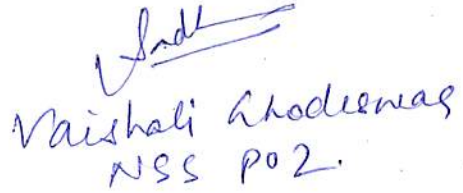 Vaishali Ghodeswar
NSS PO2.